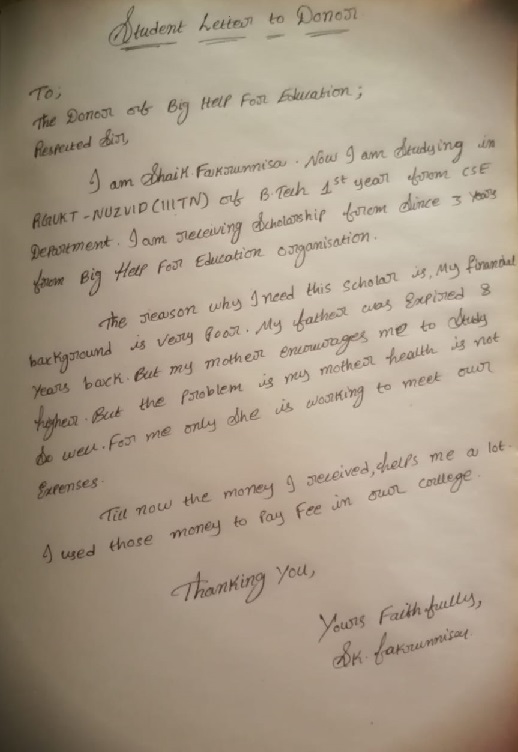 Student Letter to Donor
To;
The Donor of Big Help For Education;
Respected Sir,
I am Shaik. Fakrunnisa. Now I am Studying in
RGUKT-NUZVID (IIITN) of B.Tech 1st year from CSE
Department. I am receiving Scholarship from since 3 years
from Big Help For Education organisation.
The reason why I need this scholar is, My financial
background is very poor. My father was Expired 8
years back. But my mother encourages me to study
higher. But the problem is my mother health is not
so well. For me only she is working to meet our
Expenses.
Till now the money I received, helps me a lot.
I used those money to pay Fee in our college.
Thanking you,
Yours Faithfully,
Sk. fakrunnisa